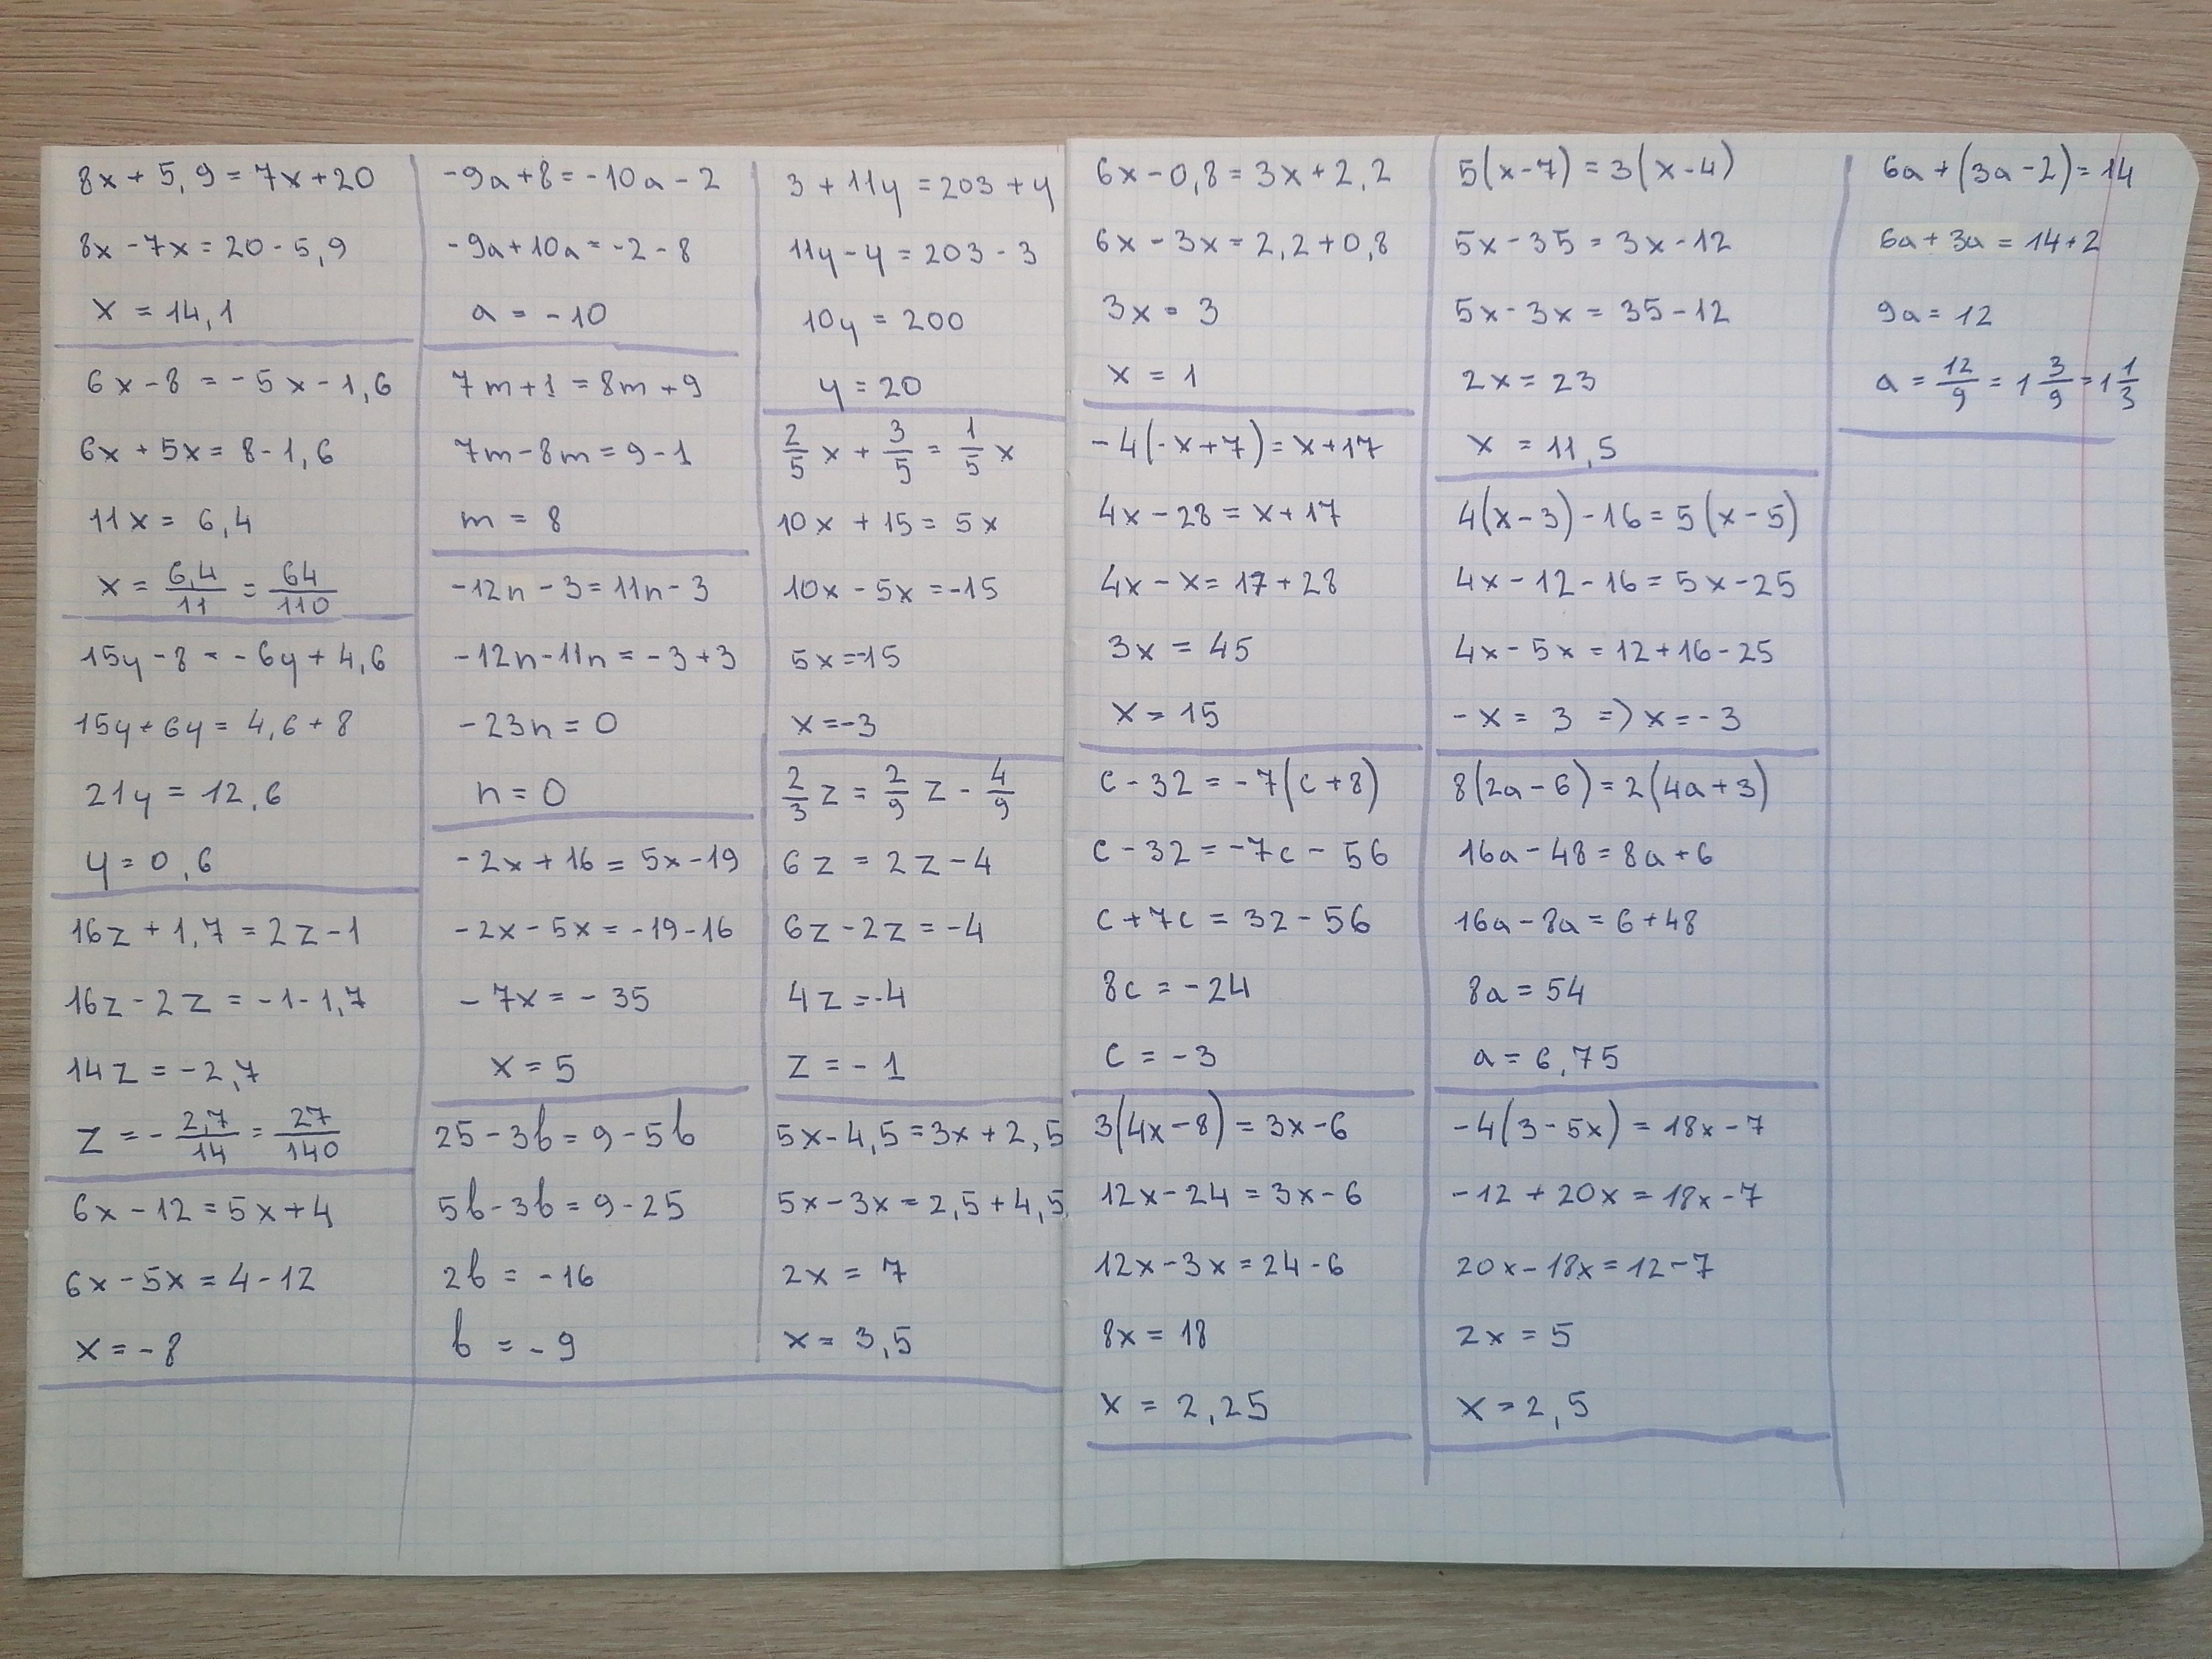 8x + 5,9 = 7x + 20
8x - 7x = 20 - 5,9
x = 14,1
6x - 8 = -5x - 1,6
6x + 5x = 8 - 1,6
11x = 6,4
x = 6,4/11 = 64/110
15y - 8 = -6y + 4,6
15y + 6y = 4,6 + 8
21y = 12,6
y = 0,6
16z + 1,7 = 2z - 1
16z - 2z = -1 - 1,7
14z = -2,7
z = - 2,7/14 = 27/140
6x - 12 = 5x + 4
6x - 5x = 4 - 12
x = -8
-9a + 8 = -10a - 2
-9a + 10a = -2 - 8
a = -10
7m + 1 = 8m + 9
7m - 8m = 9 - 1
m = 8
-12n - 3 = 11n - 3
-12n - 11n = -3 + 3
-23n = 0
n = 0
-2x + 16 = 5x - 19
-2x - 5x = -19 - 16
-7x = -35
x = 5
25 - 3b = 9 - 5b
5b - 3b = 9 - 25
2b = -16
b = -9
3 + 11y = 203 + y
11y - y = 203 - 3
10y = 200
y = 20
2/5 x + 3/5 = 1/5 x
10x + 15 = 5x
10x - 5x = -15
5x = -15
x = -3
2/3 z = 2/9 z - 4/9
6z = 2z - 4
6z - 2z = -4
4z = -4
z = -1
5x - 4,5 = 3x + 2,5
5x - 3x = 2,5 + 4,5
2x = 7
x = 3,5
6x - 0,8 = 3x + 2,2
6x - 3x = 2,2 + 0,8
3x = 3
x = 1
-4(-x + 7) = x + 17
4x - 28 = x + 17
4x - x = 17 + 28
3x = 45
x = 15
c - 32 = -7(c + 8)
c - 32 = -7c - 56
c + 7c = 32 - 56
8c = -24
c = -3
3(4x - 8) = 3x - 6
12x - 24 = 3x - 6
12x - 3x = 24 - 6
8x = 18
x = 2,25
5(x - 7) = 3(x - 4)
5x - 35 = 3x - 12
5x - 3x = 35 - 12
2x = 23
x = 11,5
4(x - 3) - 16 = 5(x - 5)
4x - 12 - 16 = 5x - 25
4x - 5x = 12 + 16 - 25
-x = 3 => x = -3
8(2a - 6) = 2(4a + 3)
16a - 48 = 8a + 6
16a - 8a = 6 + 48
8a = 54
a = 6,75
-4(3 - 5x) = 18x - 7
-12 + 20x = 18x - 7
20x - 18x = 12 - 7
2x = 5
x = 2,5
6a + (3a - 2) = 14
6a + 3a = 14 + 2
9a = 12
a = 12/9 = 1 3/9 = 1 1/3